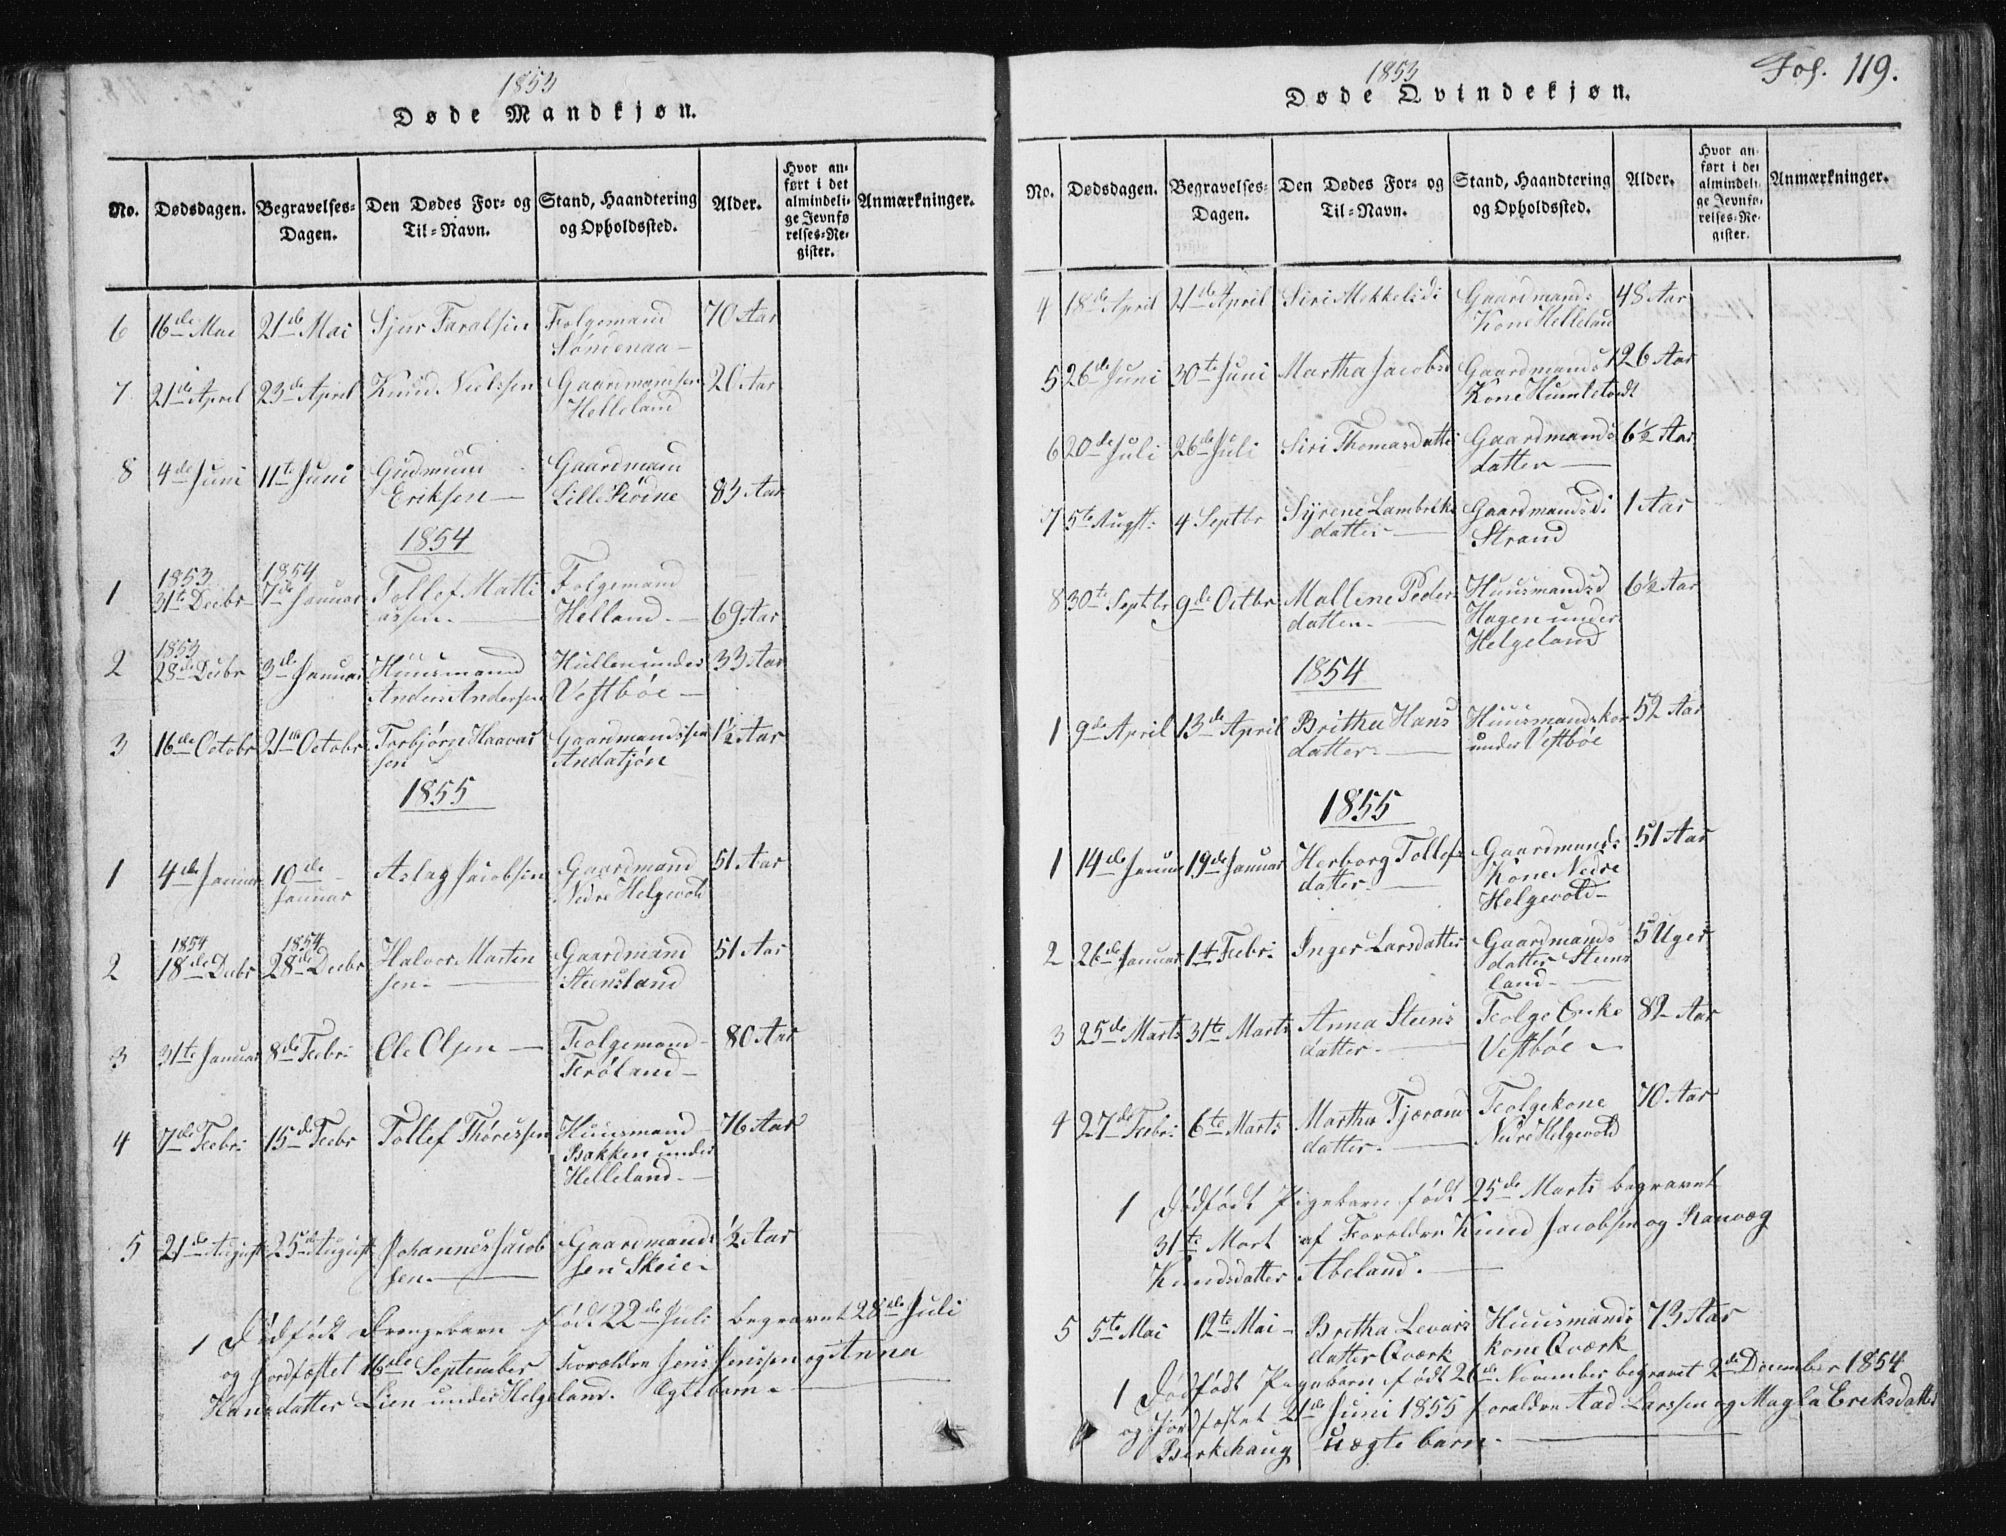 1853
Døde Mandkjøn.
No. Dødsdagen. Begravelses-Dagen. Den Dødes For- og Til-Navn. Stand, Haandtering og Opholdssted. Alder. Hvor anført i det almindelige Jevnførelses-Register. Anmærkninger.
6 16de Mai 21de Mai Sjur Taralsen Folgemand 70 Aar
7 21de April 23de April Knud Nielssen Gaardmandsen 20 Aar
Helleland
8 4de Juni 11te Juni Gudmund Gaardmand
Eriksen Lille 83 Aar
1854
1853 1854
1 31te Decbr 7de Januar Tollef Matti Folgemand
assen. Helland. 69 Aar
1853
2 28de Decbr 3de Januar Huusmand Hullen under 33 Aar
Anders Andersen Vestbøe
3 16de Octobr 21de Octobr Torbjørn Haavar Gaardmandssen 1½ Aar
sen
1855
1 4de Januar 10de Aslag Jacobsen Gaardmand 51 Aar
Januar Nedre Helgevold
1854 1854
2 18de Decbr 28de Decbr Halvor Morten Gaardmand 51 Aar
sen. Steensland
3 31te Januar 8de Febr: Ole Olsen Folgemand 80 Aar
Frøland
4 7de Febr: 15de Febr Tollef Thoressen Huusmand 76 Aar
Bakken under
Helleland.
5 21de August 25de August Johannes Jacob Gaardmands ½ Aar
sen. sen Skeie
1 Dødfødt Drengebarn født 22de Juli begravet 28de Juli
og jordfæstet 16de September Forældre Jens Jenssen og Anna
Hansdatter Lien under Helgeland. Ægtebarn
1853
Fol. 119.
Døde Qvindekjøn.
No. Dødsdagen. Begravelses-Dagen. Den Dødes For- og Til-Navn. Stand, Haandtering og Opholdssted. Alder. Hvor anført i det almindelige Jevnførelses-Register. Anmærkninger.
4 18de April 21de April Siri Mekkelsd: Gaardmands 48 Aar
Kone Helleland
5 26de Juni 30te Juni Martha Jacobsd Gaardmands 26 Aar
Kone Humlestødt
6 20de Juli 26de Juli Siri Thomasdatter Gaardmands 6½ Aar
datter
7 5te Augst: 4 Septbr Syrene Lambrikt Gaardmandsd: 1 Aar
datter Strand
8 30te Septbr 9de Octbr Mallene Peder Huusmandsd 6½ Aar
datter. Hagen under
Helgeland
1854
1 9de April 13de April Britha Hans Huusmandskon 52 Aar
datter. under Vestbøe
1855
1 14de Januar 19de Januar Herborg Tollefs Gaardmands 51 Aar
datter. Kone Nedre
Helgevold
2 26de Januar 1te Febr: Inger Larsdatter Gaardmands 5 Uger
datter Steens
land
3 25de Marts 31te Marts Anna Steins Folge Enke 82 Aar
datter. Vestbøe
4 27de Febr: 6te Marts Martha Tjerand Folgekone 70 Aar
datter. Nedre Helgevold
1 Dødfødt Pigebarn født 25de Marts begravet
31te Mart af Forældre Knud Jacobsen og Ranveg
Knudsdatter Abeland.
5 5te Mai 12te Mai Britha Levars Huusmands 73 Aar
datter Qværk kone Qværk
1 Dødfødt Pigebarn født 26de November begravet 2de December 1854
og jordfæstet 21de Juni 1855 forældre Aad Larssen og Magla Eriksdatter
Birkehaug uægte barn.